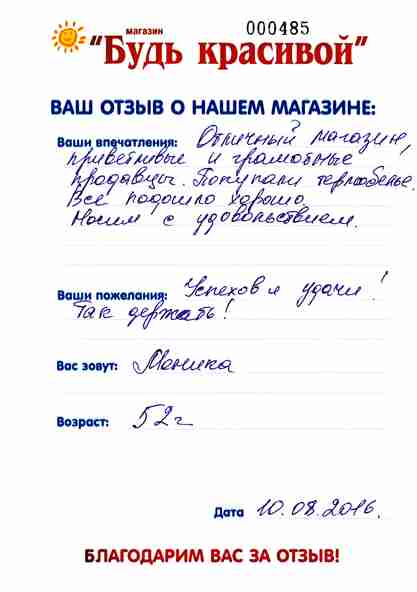 магазин 000485
“Будь красивой”
ВАШ ОТЗЫВ О НАШЕМ МАГАЗИНЕ:
Ваши впечатления: Отличный магазин,
приветливые и грамотные
продавцы. Покупали термобелье.
Всё подошло хорошо
Носим с удовольствием.
Ваши пожелания: Успехов и удачи!
Так держать!
Вас зовут: Моника
Возраст: 52 г
Дата 10.08.2016.
БЛАГОДАРИМ ВАС ЗА ОТЗЫВ!